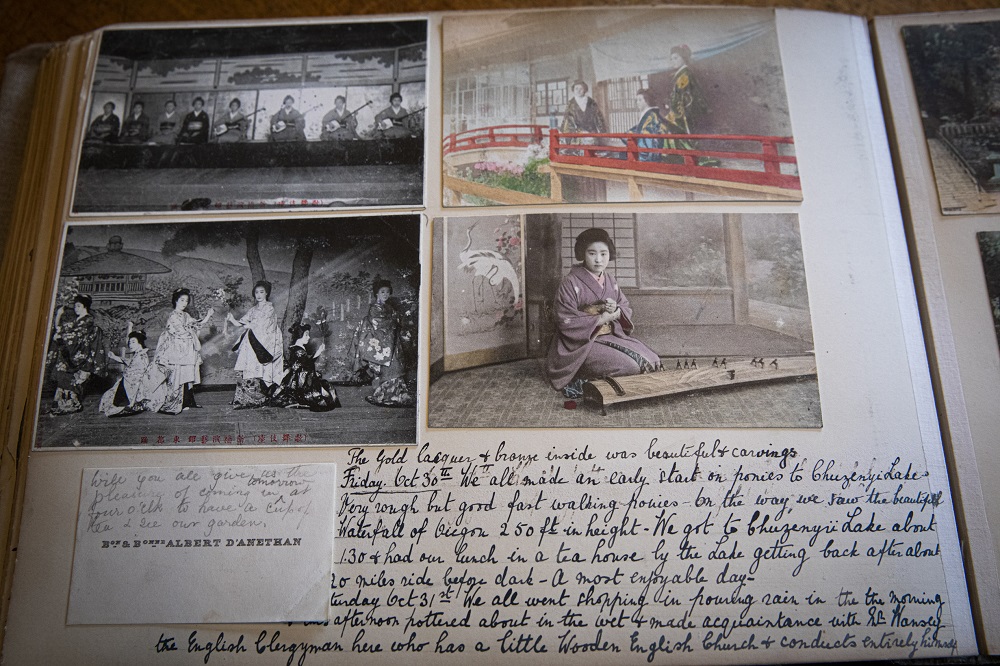 Will you all give us the
tomorrow
pleasure of coming in, at
four o'clk to have a cup of
tea & see our garden.
BON & BONNE ALBERT D'ANETHAN
The Gold lacquer & bronze inside was beautiful & carvings
Friday. Oct 30th We all made an early start on ponies to Chuzenyii Lake
Very rough but good fast walking ponies - On the way we saw the beautiful
Waterfall of 250 ft in height - We got to Chuzenyii Lake about
1.30 & had our lunch in a tea house by the Lake getting back after about
20 miles ride before dark - A most enjoyable day -
turday Oct 31st We all went shopping in pouring rain in the the morning
afternoon pottered about in the wet & made acquaintance with
the English Clergyman here who has a little Wooden English Church & conducts entirely himself